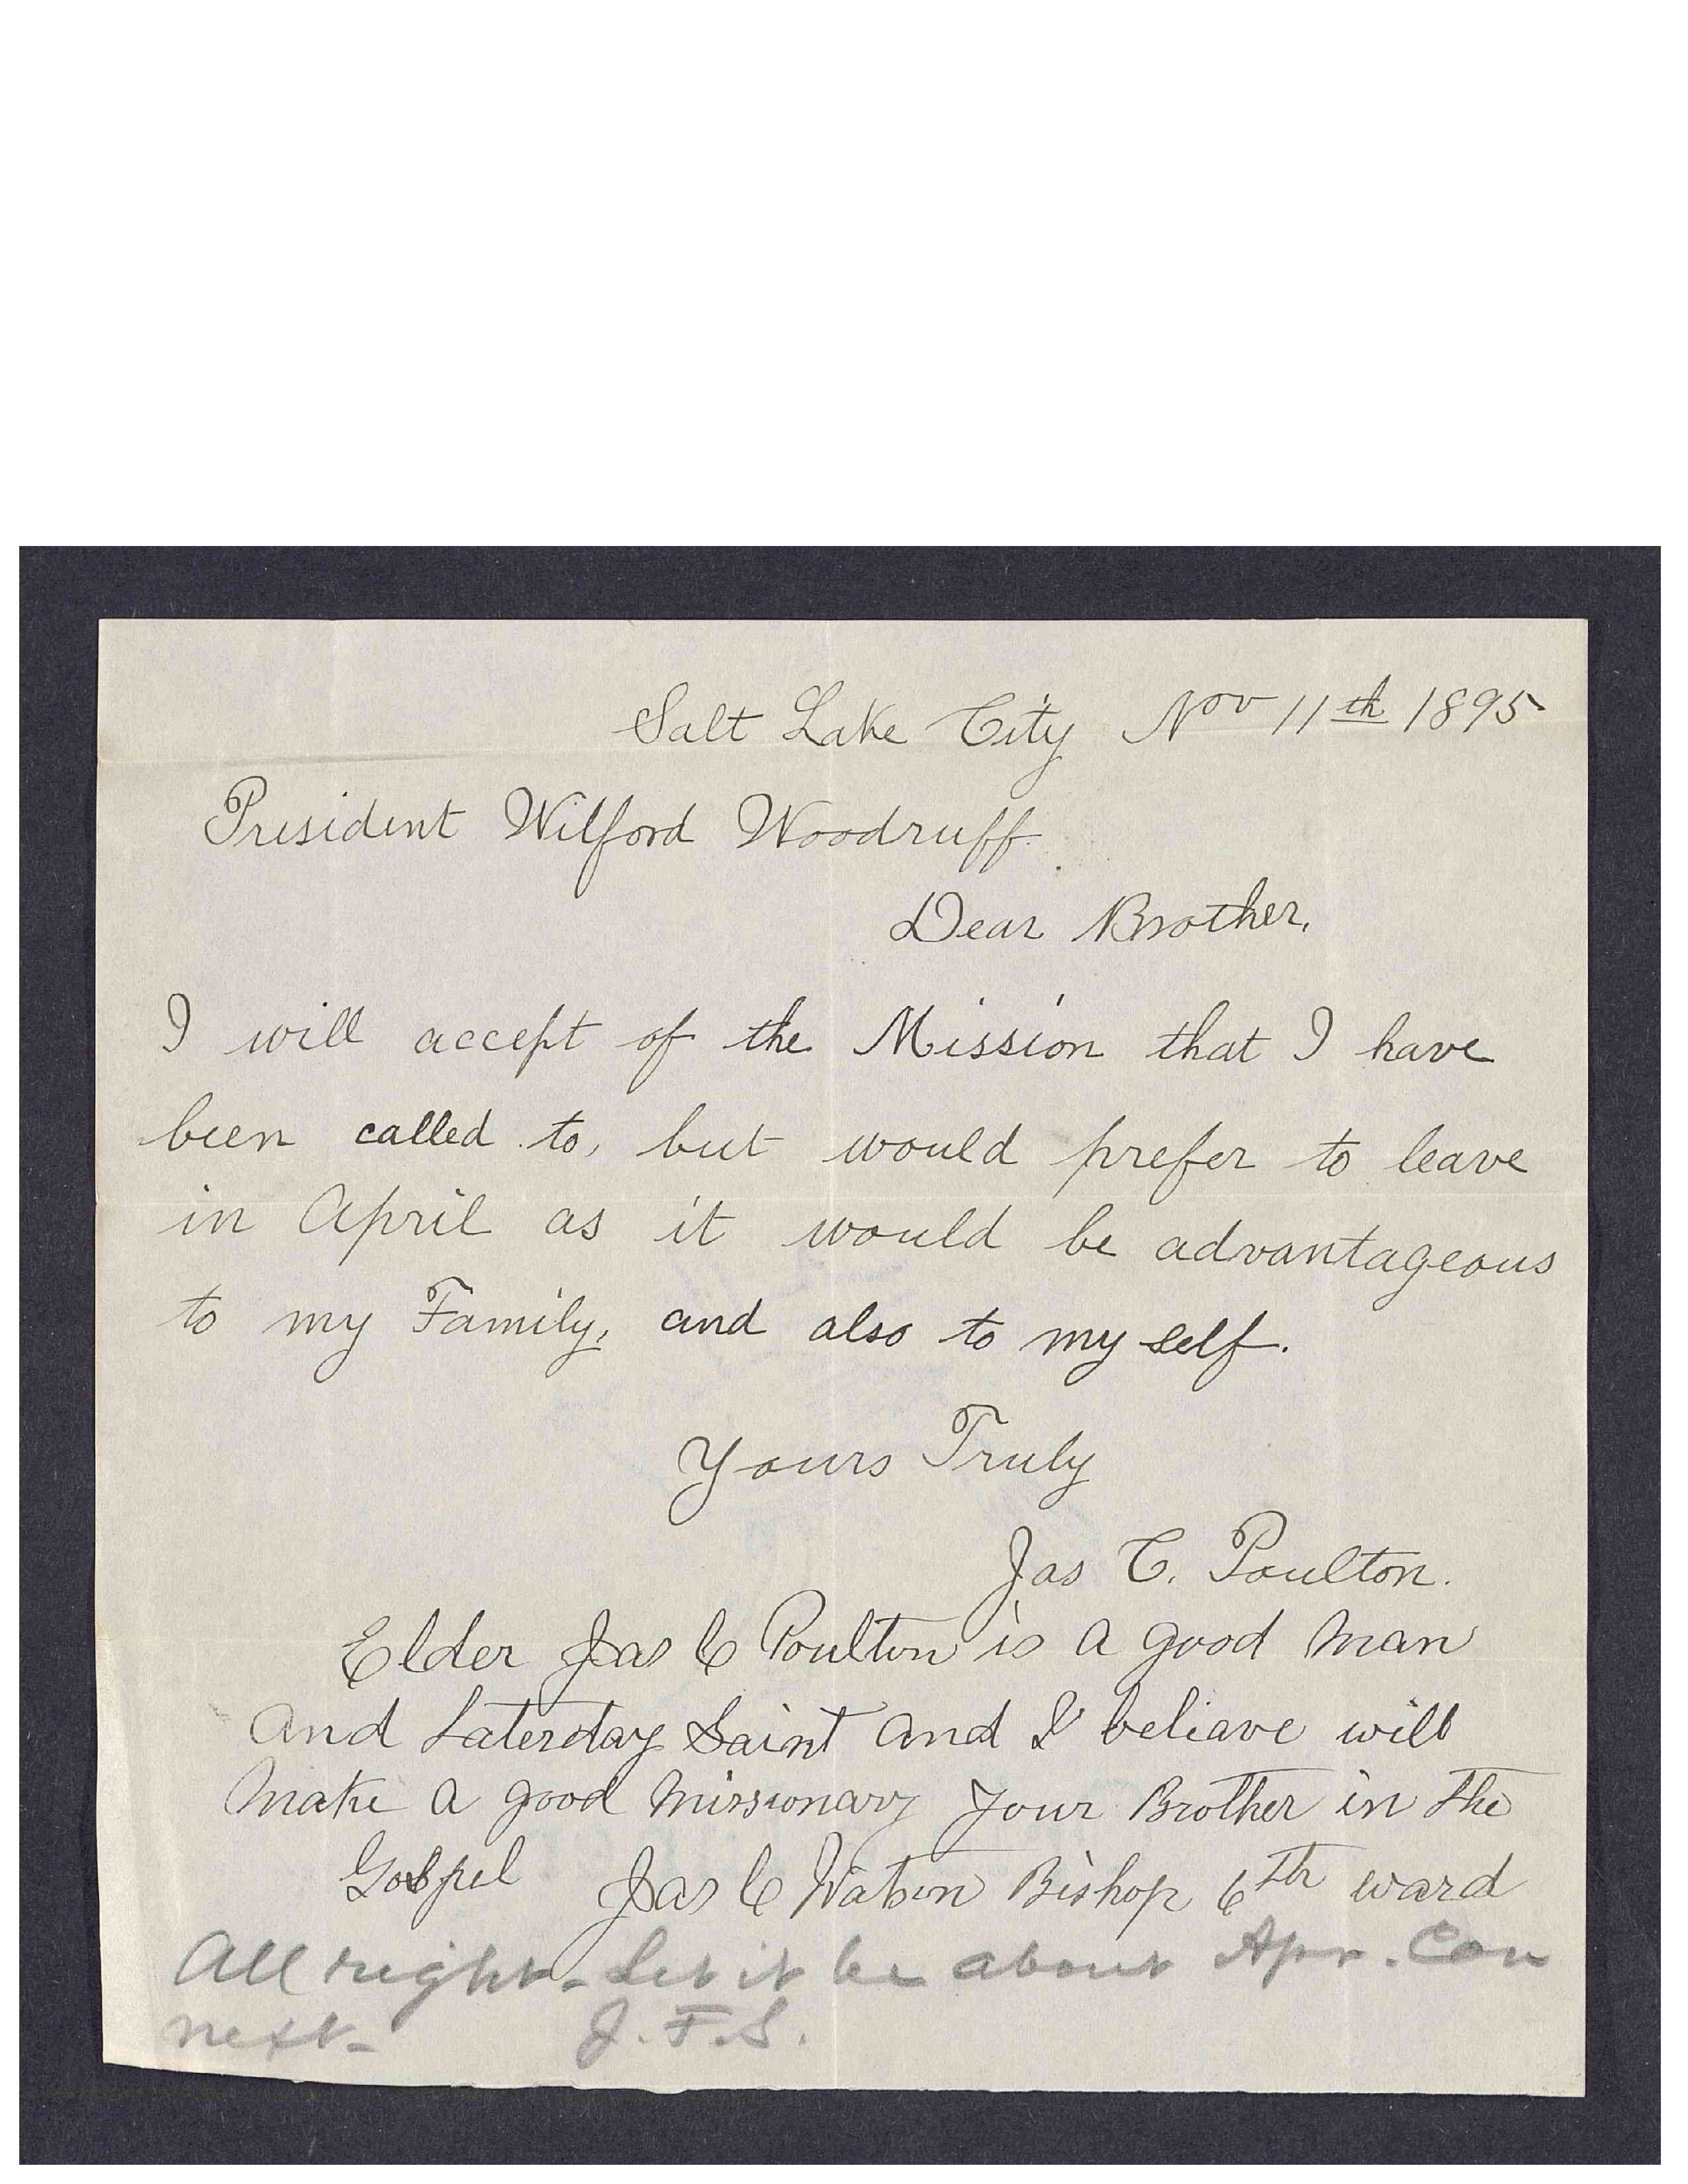 Salt Lake City Nov 11th 1895
President Wilford Woodruff.
Dear Brother,
I will accept of the Mission that I have
been called to, but would prefer to leave
in April as it would be advantageous
to my Family, and also to my self.
Yours Truly
Jas C. Poulton.
Elder Jas C Poulton is a good man
and Laterday Saint and I beliave will
make a good missionary your Brother in the
Gospel Jas C Watson Bishop 6th ward
All right - Let it be about Apr. Con
next - J. F. S.